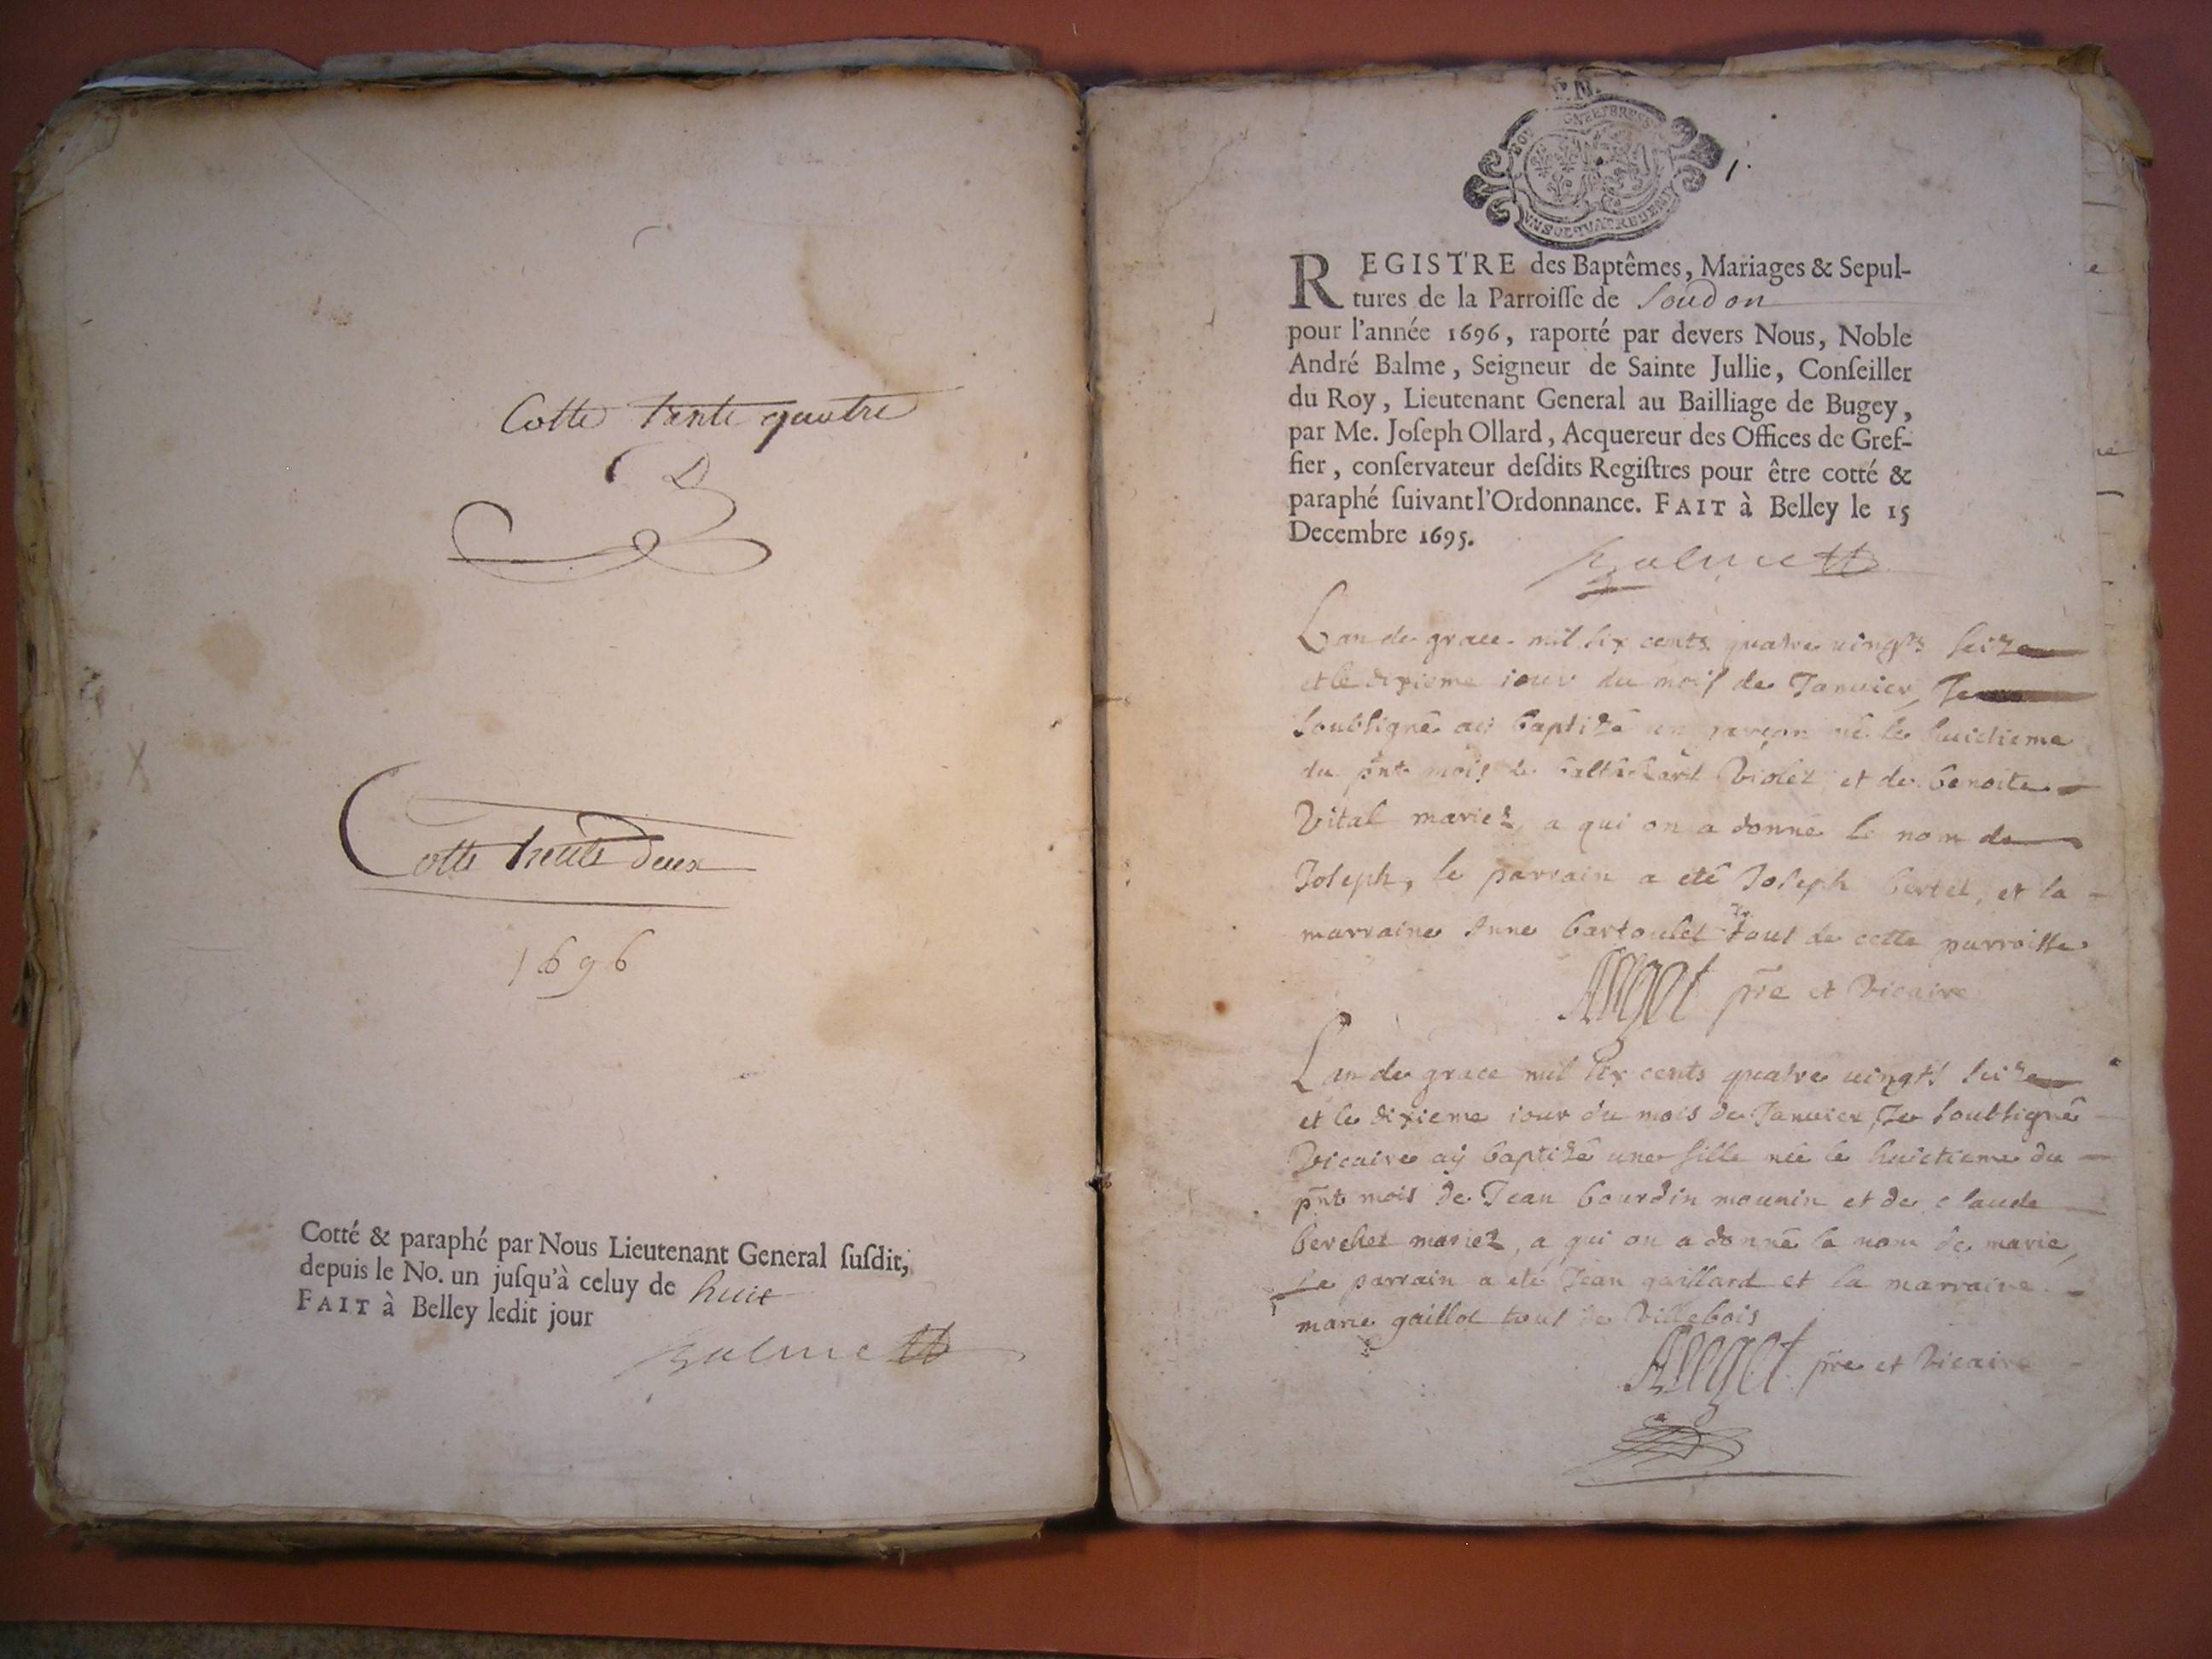 Cotte trante quatre
Cotte trente deux
1696
Cotté & paraphé par Nous Lieutenant General ſuſdit,
depuis le No. un juſqu'à celuy de huit
FAIT à Belley ledit jour
Balme
1.
UN SOL QUATRE DENIERS
REGISTRE des Baptêmes, Mariages & Sepul-
tures de la Parroiſſe de Soudon
pour l'année 1696, raporté par devers Nous, Noble
André Balme, Seigneur de Sainte Jullie, Conſeiller
du Roy, Lieutenant General au Bailliage de Bugey,
par Me. Joſeph Ollard, Acquereur des Offices de Gref-
fier, conſervateur deſdits Regiſtres pour être cotté &
paraphé ſuivant l'Ordonnance. FAIT à Belley le 15
Decembre 1695.
Balme
Lan de grace mil six cents quatre uingts seize
et le dixieme iour du mois de Januier, Je
soubsigné aÿ baptizé un garçon né le huictieme
du pnt mois de Violet et de benoite
Vital mariez, a qui on a donné le nom de
Joseph, le parrain a eté Joseph et la
marraine Anne bartoulet tout de cette parroisse
pre et Vicaire
Lan de grace mil six cents quatre uingts seize
et le dixieme iour du mois de Januier, Je soubsigné
Vicaire aÿ baptizé une fille née le huictieme du
pnt mois de Jean bourdin mounin et de claude
berchet mariez, a qui on a donné le nom de marie,
Le parrain a eté Jean gaillard et la marraine
marie gaillot tout de Villebois
pre et Vicaire